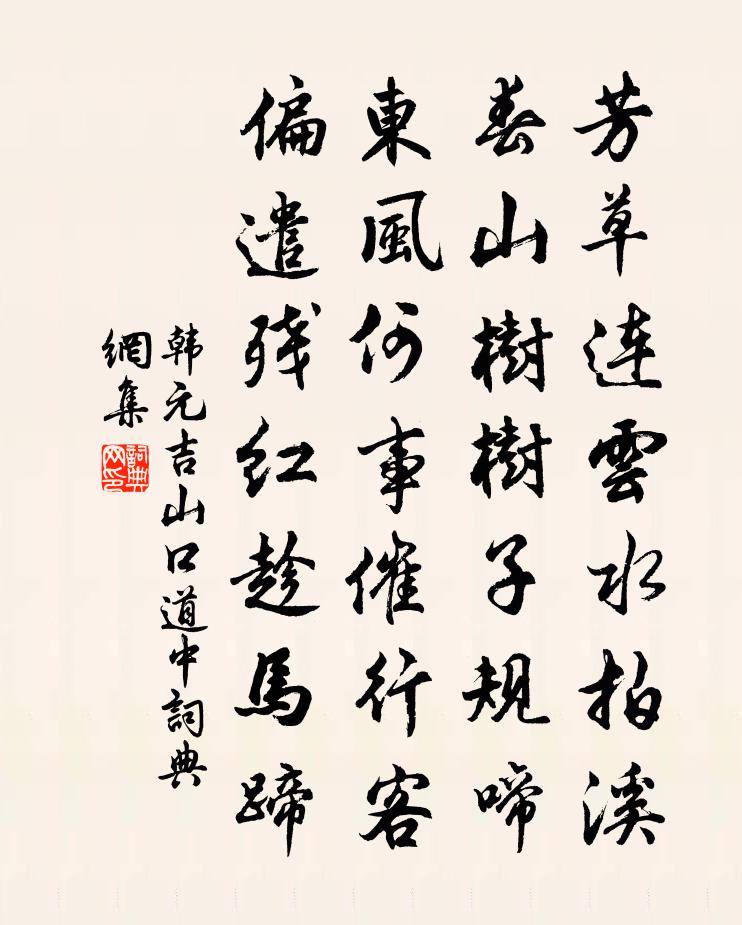 芳草連雲水拍溪
春山樹樹子規啼
東風何事催行客
偏遣残红趁馬蹄
韩元吉山口道中詞典
網集
詞典
网印